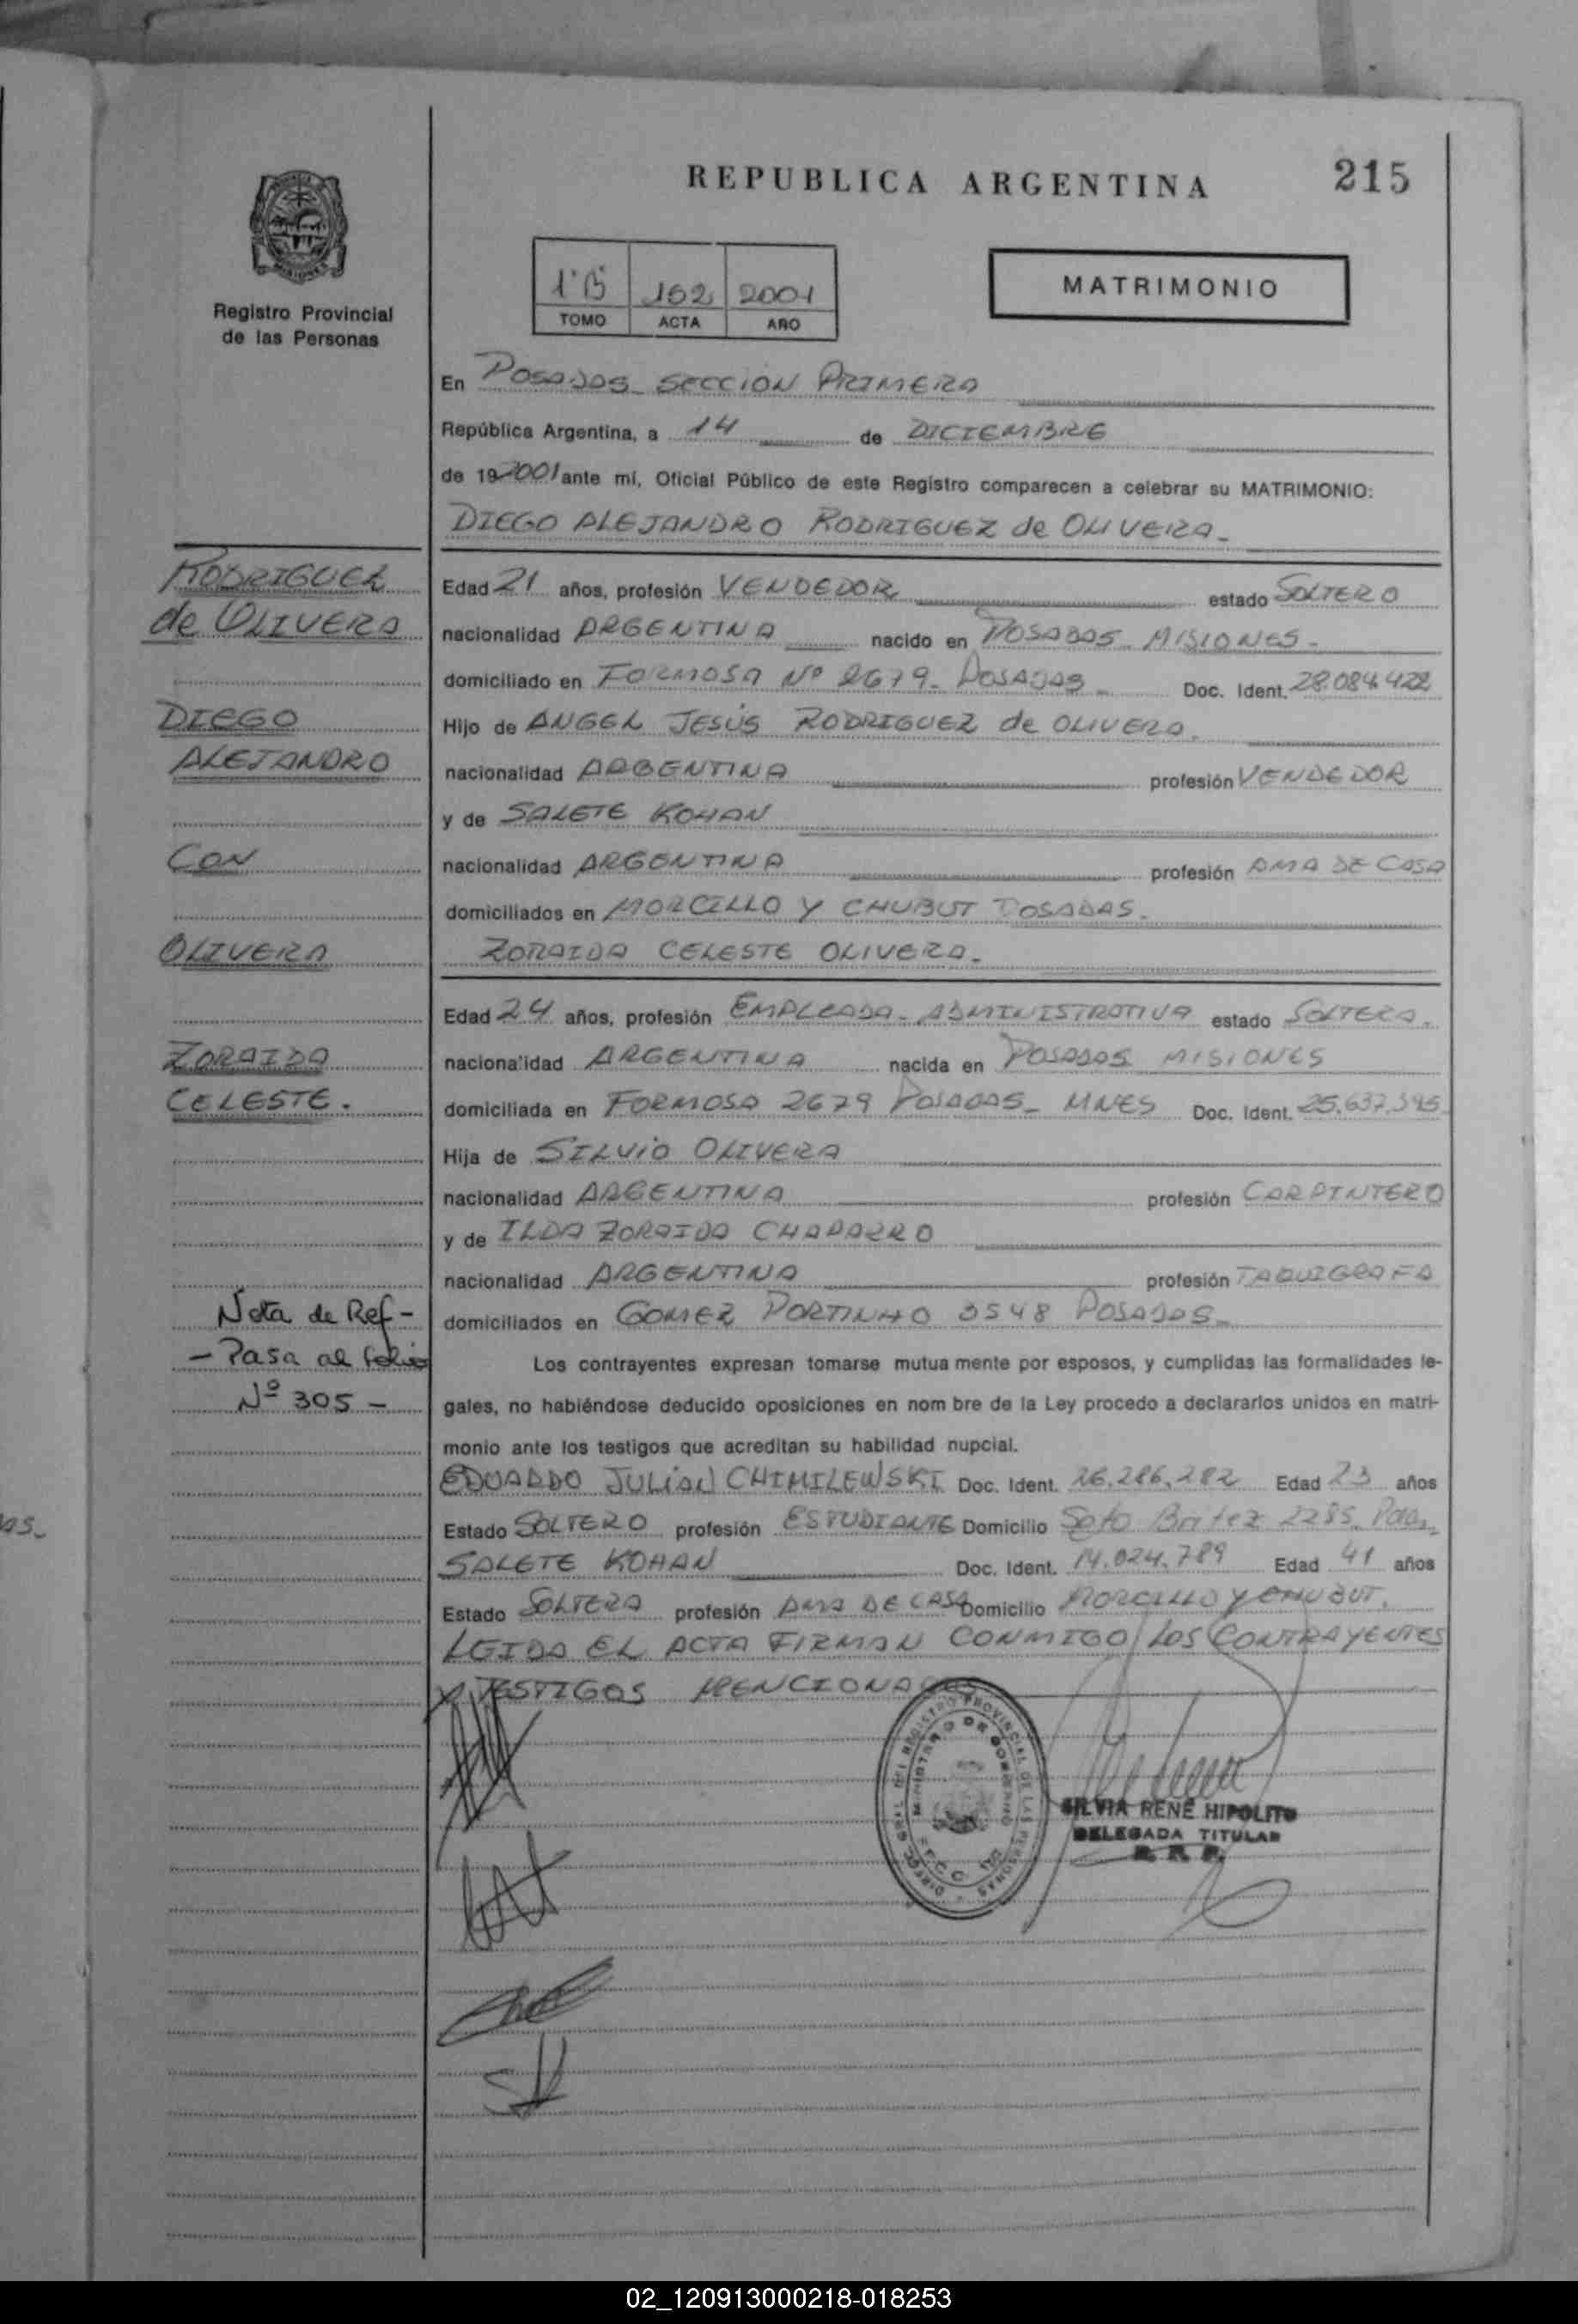 REPUBLICA ARGENTINA
215
Registro Provincial
de las Personas
1ºB 162 2001
TOMO ACTA AÑO
MATRIMONIO
En POSADAS SECCION PRIMERA
República Argentina, a 14 de DICIEMBRE
de 19 2001 ante mí, Oficial Público de este Registro comparecen a celebrar su MATRIMONIO:
DIEGO ALEJANDRO RODRIGUEZ de OLIVERA-
RODRIGUEZ
de OLIVERA
DIEGO
ALEJANDRO
CON
OLIVERA
ZORAIDA
CELESTE.
Edad 21 años, profesión VENDEDOR estado SOLTERO
nacionalidad ARGENTINA nacido en POSADAS - MISIONES-
domiciliado en FORMOSA Nº 2679- POSADAS- Doc. Ident. 28.084.422
Hijo de ANGEL JESÚS RODRIGUEZ de OLIVERA.
nacionalidad ARGENTINA profesión VENDEDOR
y de SALETE KOHAN
nacionalidad ARGENTINA profesión AMA DE CASA
domiciliados en MORCILLO Y CHUBUT POSADAS.
ZORAIDA CELESTE OLIVERA-
Edad 24 años, profesión EMPLEADA- ADMINISTRATIVA estado SOLTERA.
nacionalidad ARGENTINA nacida en POSADAS MISIONES
domiciliada en FORMOSA 2679 POSADAS- MNES Doc. Ident.
Hija de SILVIO OLIVERA
nacionalidad ARGENTINA profesión CARPINTERO
y de ILDA ZORAIDA CHAPARRO
nacionalidad ARGENTINA profesión TAQUIGRAFA
domiciliados en GOMEZ PORTINHO 3548 POSADAS-
Nota de Ref-
- Pasa al folio
Nº 305 -
Los contrayentes expresan tomarse mutua mente por esposos, y cumplidas las formalidades le-
gales, no habiéndose deducido oposiciones en nom bre de la Ley procedo a declararlos unidos en matri-
monio ante los testigos que acreditan su habilidad nupcial.
EDUARDO JULIAN CHIMILEWSKI Doc. Ident. 26.286.282 Edad 23 años
Estado SOLTERO profesión ESTUDIANTE Domicilio Soto Britez 2285. Pdas,
SALETE KOHAN Doc. Ident. 14.024.789 Edad 41 años
Estado SOLTERA profesión AMA DE CASA Domicilio MORCILLO Y CHUBUT.
LEIDA EL ACTA FIRMAN CONMIGO LOS CONTRAYENTES
Y TESTIGOS MENCIONADOS
SILVIA RENÉ HIPOLITO
DELEGADA TITULAR
R. P. P.
02_120913000218-018253